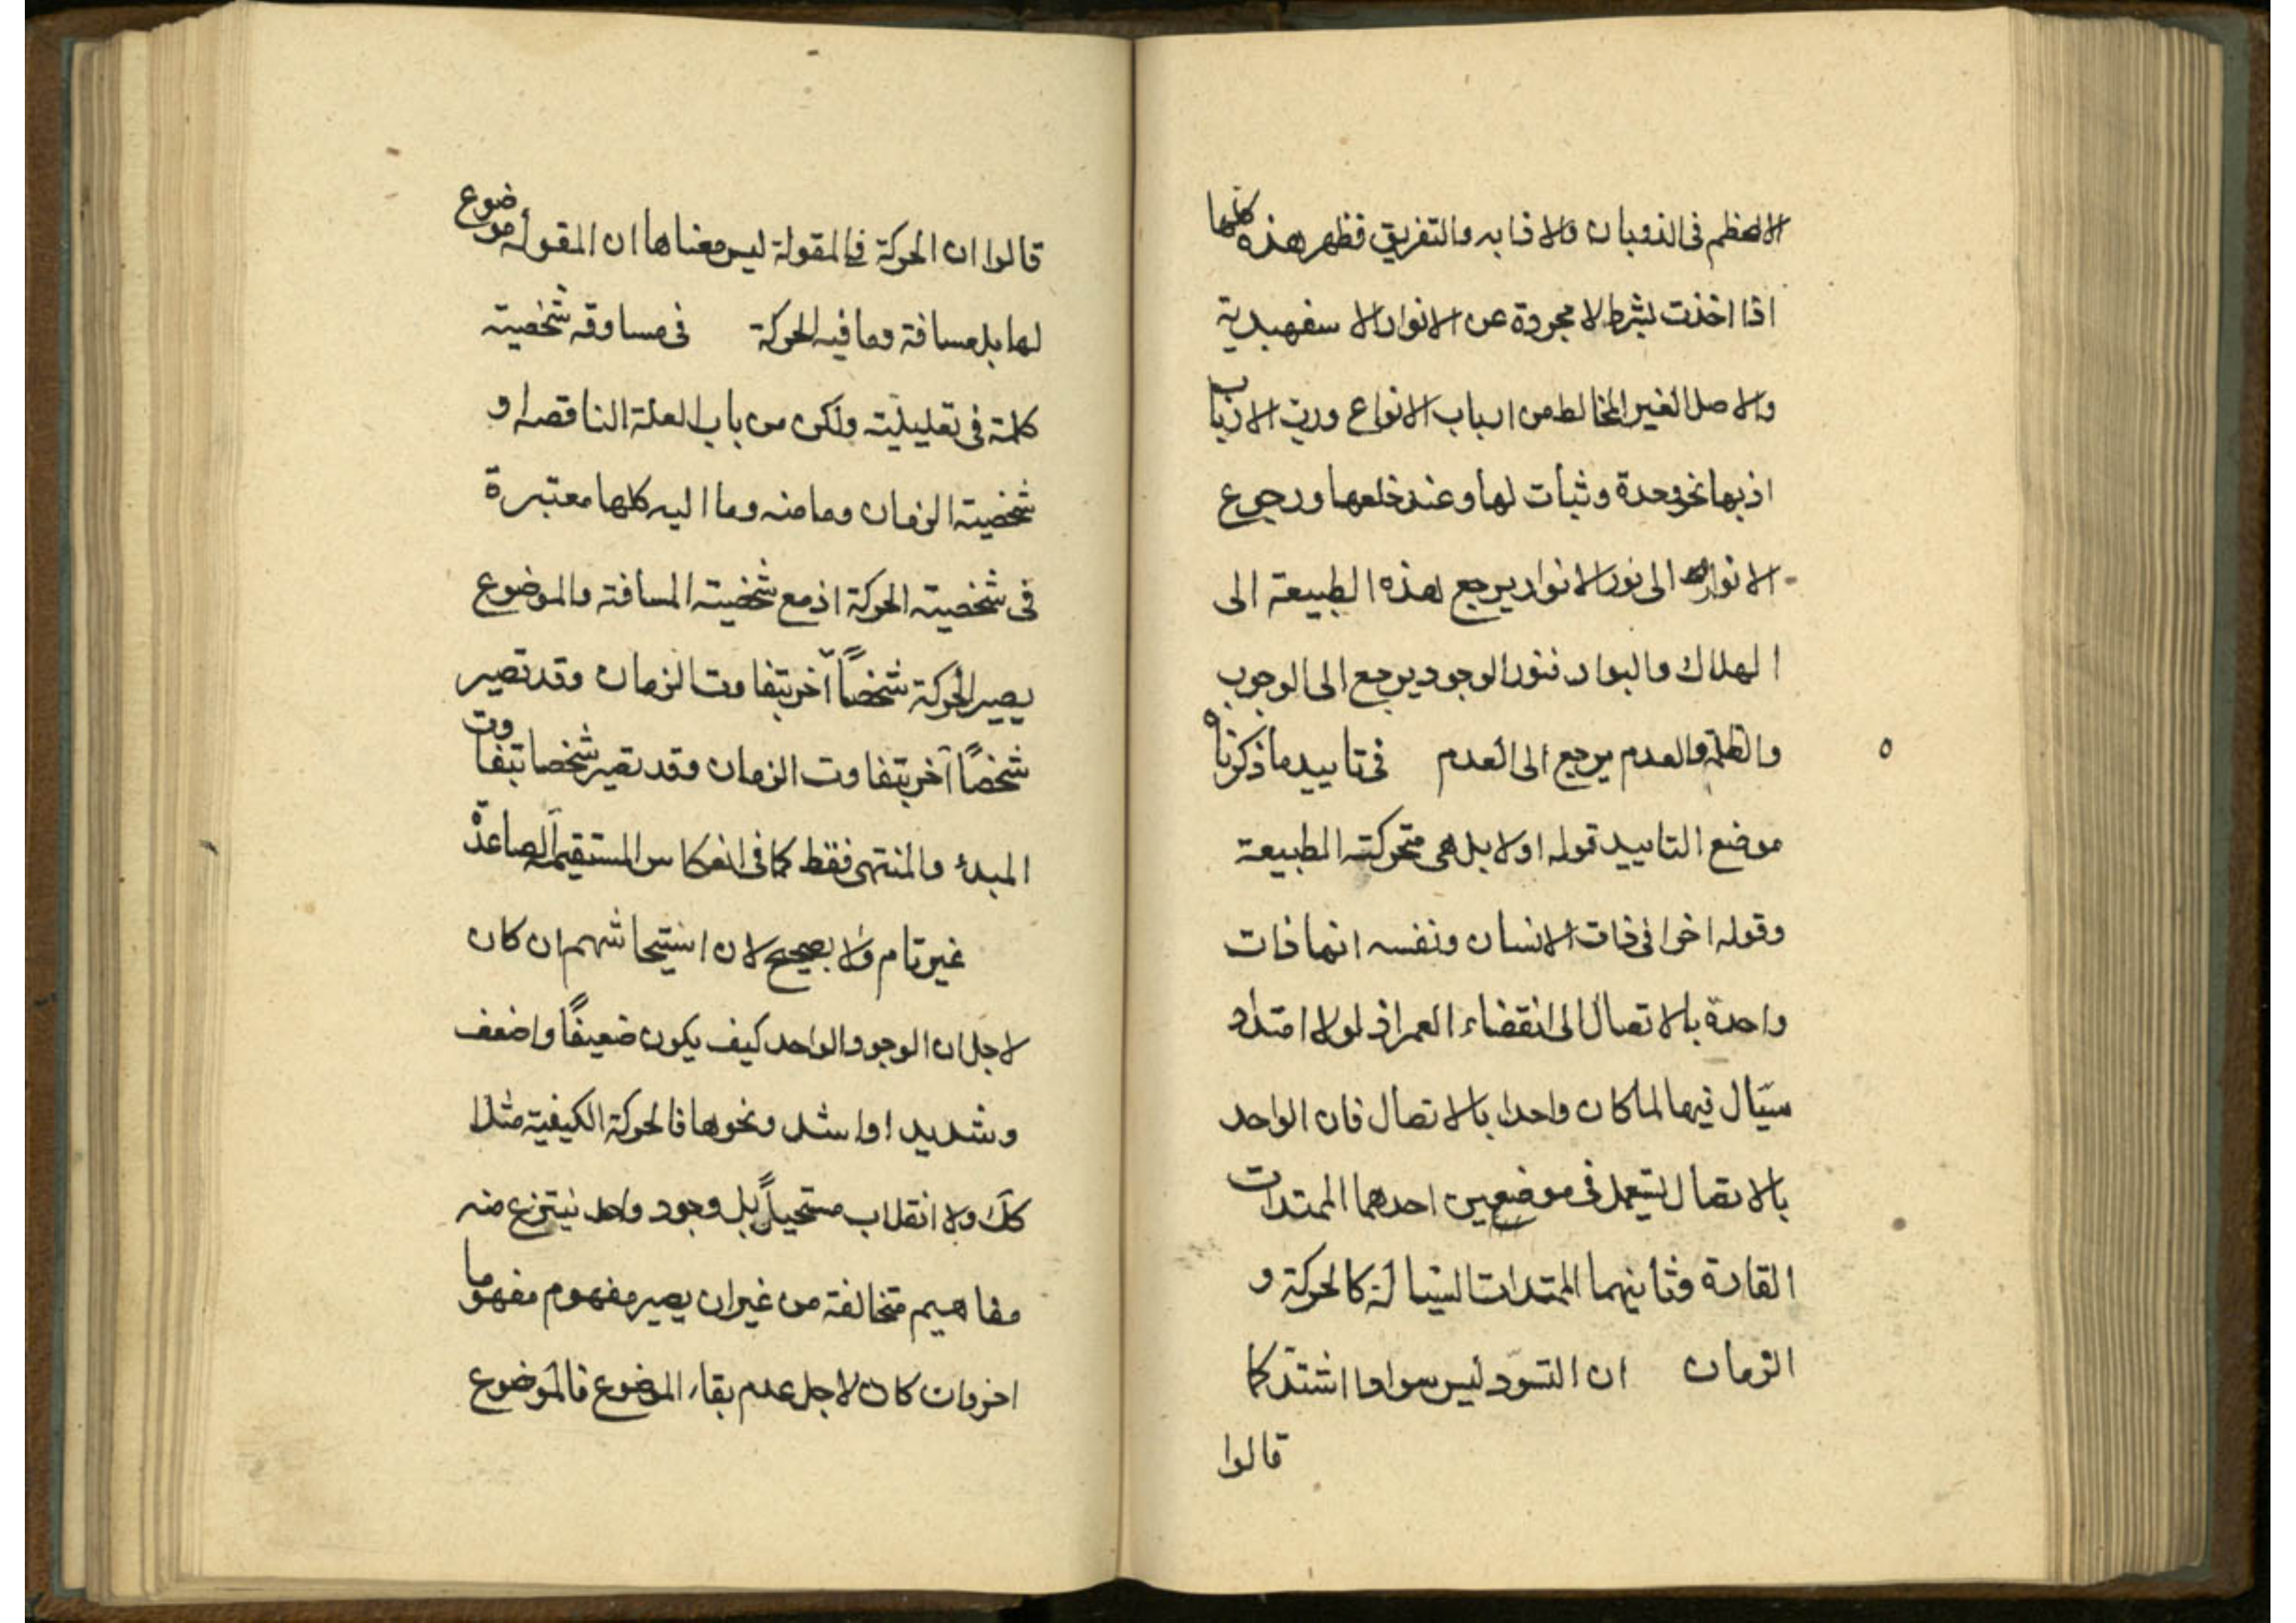 الاعظم فى الذوبان والاذابه والتفريق فظهر هذه كلها
اذا اخذت بشرط لا مجردة عن الانوار الاسفهبدية
والاصل الغير المخالط من ارباب الانواع ورب الارباب
اذ بها نحو وحدة وثبات لها وعند خلعها ورجوع
الانوار الى نور الانوار يرجع هذه الطبيعة الى
الهلاك والبوار فنور الوجود يرجع الى الوجوب
والظلمة والعدم يرجع الى العدم فى تاييد ما ذكرناه
موضع التاييد قوله اولا بل هى متحركته الطبيعة
وقوله اخرا فى ذات الانسان ونفسه انها ذات
واحدة بالاتصال الى انقضاء العمر اذ لولا امتداد
سيّال فيها لما كان واحدا بالاتصال فان الواحد
بالاتصال يستعمل فى موضعين احدهما الممتدات
القارة وثانيهما الممتدات السيالة كالحركة و
الزمان ان التسوّد ليس سوادا اشتدّ كما
قالوا
قالوا ان الحركة فى المقولة ليس معناها ان المقولة موضوع
لها بل مسافة وما فيه الحركة فى مساوقه شخصيته
كلمة فى تعليليّته ولكن من باب العلة الناقصه او
شخصيته الزمان وما منه وما اليه كلها معتبرة
فى شخصيته الحركة اذ مع شخصيته المسافته والموضوع
يصير الحركة شخصاً آخر بتفاوت الزمان وقد تصير
شخصاً آخر بتفاوت الزمان وقد تصير شخصا بتفاوت
المبدء والمنتهى فقط كما فى انعكاس المستقيمة الصاعدة
غير تام ولا بصحيح لان استيحاشهم ان كان
لاجل ان الوجود الواحد كيف يكون ضعيفًا واضعف
وشديد او اشد ونحوها فالحركة الكيفية مثلا
كك ولا انقلاب مستحيلاً بل وجود واحد ينتزع منه
مفاهيم متخالفة من غير ان يصير مفهوم مفهوما
اخر وان كان لاجل عدم بقاء الموضوع فالموضوع